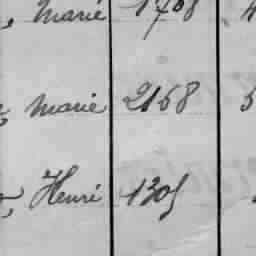 , Marie 1768 4
, Marie 2168 5
, Henri 1305